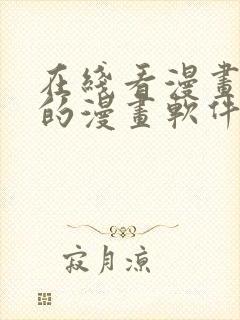 在綫看漫畫
的漫畫軟件
寂月凉